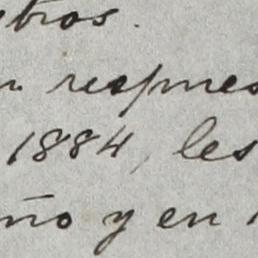 tros.
n respues
1884, les
ño y en